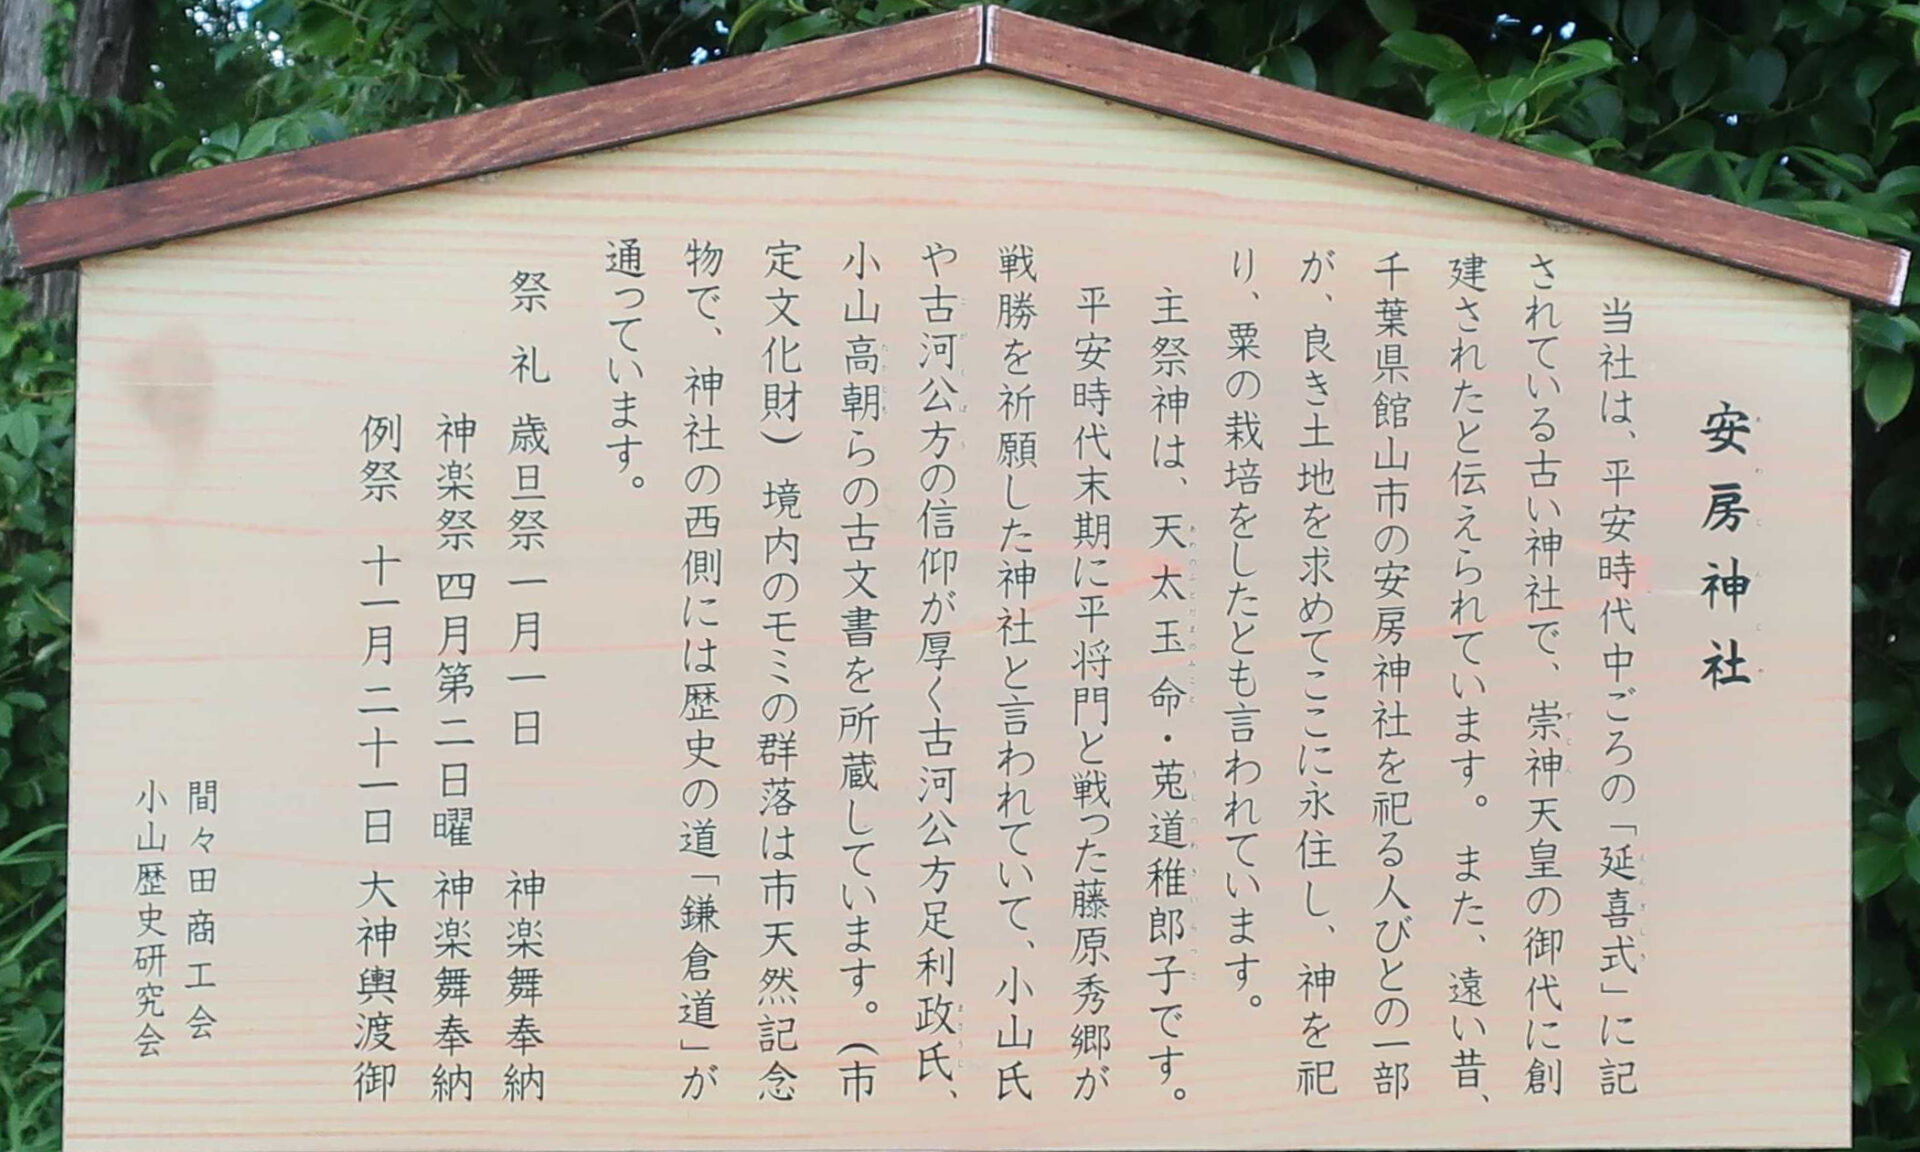 安房神社
当社は、平安時代中ごろの「延喜式」に記
されている古い神社で、崇神天皇の御代に創
建されたと伝えられています。また、遠い昔、
千葉県館山市の安房神社を祀る人びとの一部
が、良き土地を求めてここに永住し、神を祀
り、粟の栽培をしたとも言われています。
主祭神は、天太玉命・莵道稚郎子です。
平安時代末期に平将門と戦った藤原秀郷が
戦勝を祈願した神社と言われていて、小山氏
や古河公方の信仰が厚く古河公方足利政氏、
小山高朝らの古文書を所蔵しています。（市
定文化財）境内のモミの群落は市天然記念
物で、神社の西側には歴史の道「鎌倉道」が
通っています。
祭礼 歳旦祭 一月一日 神楽舞奉納
神楽祭 四月第二日曜 神楽舞奉納
例祭 十一月二十一日 大神輿渡御
間々田商工会
小山歴史研究会